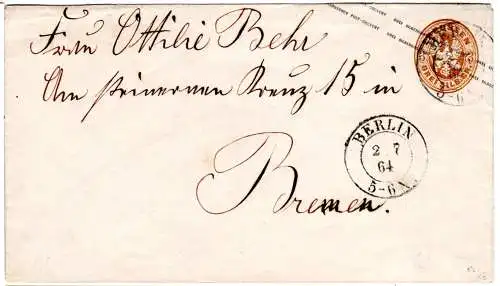 Frau Ottilie Behr
Am steinernen Kreuz 15 in
Bremen.
BERLIN
2 7
64
5-6 N.